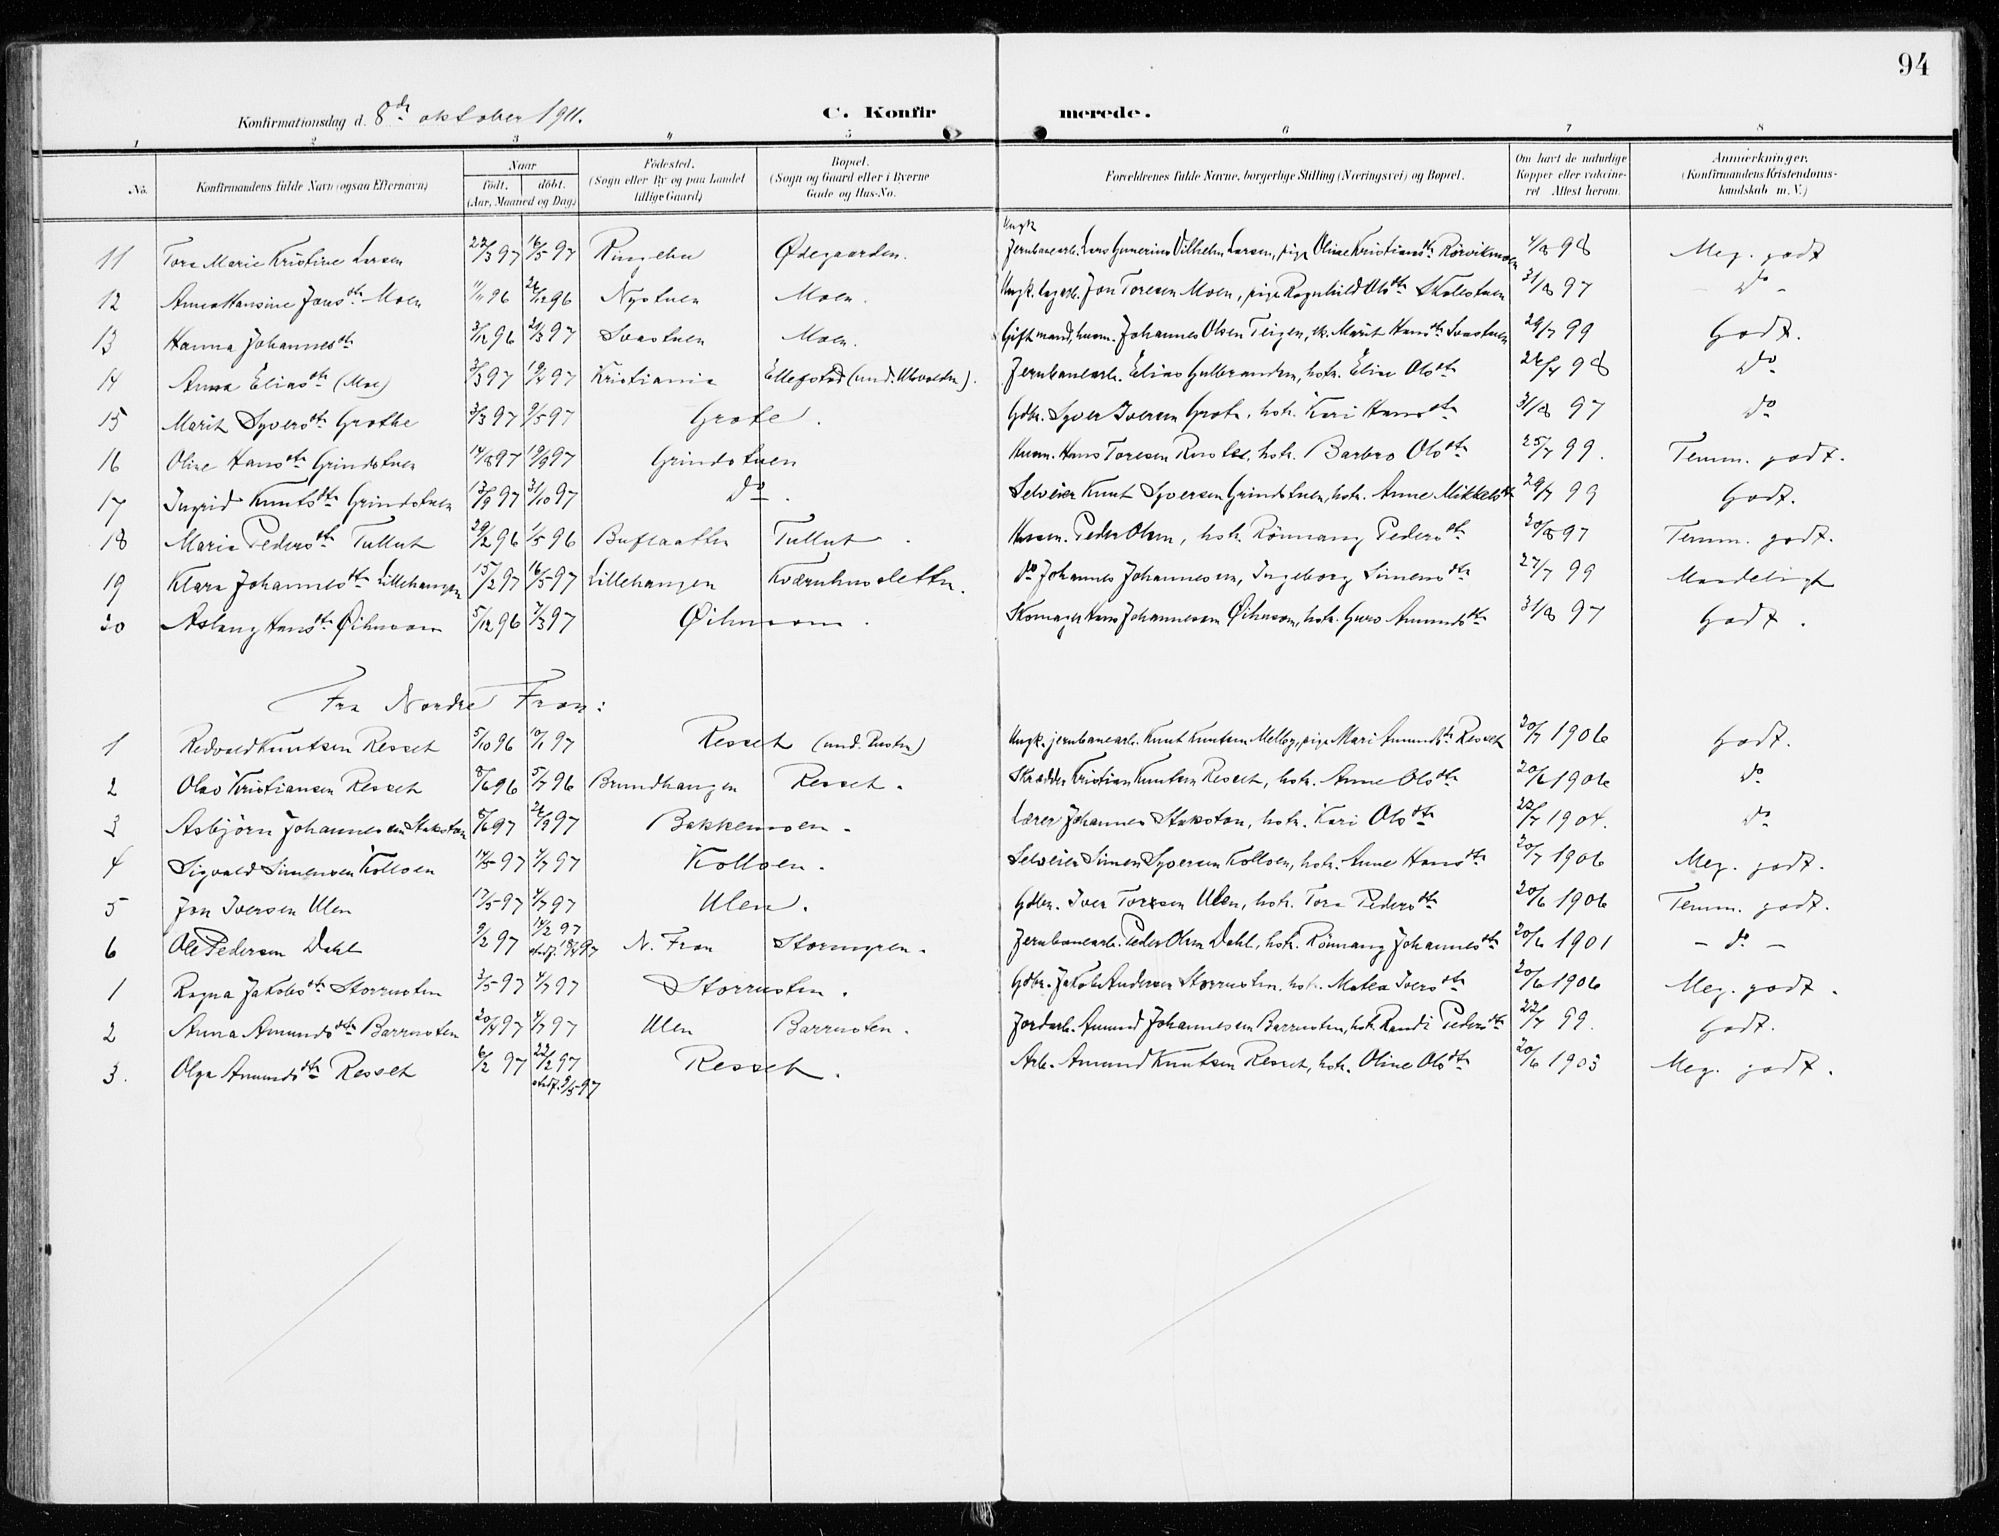 94
Konfirmationsdag d. 8de oktober 1911.
C. Konfirmerede.
1 2 3 4 5 6 7 8
No. Konfirmandens fulde Navn (ogsaa Efternavn) Naar født. døbt. (Aar, Maaned og Dag) Fødested. (Sogn eller By og paa Landet tillige Gaard) Bopæl. (Sogn og Gaard eller i Byerne Gade og Hus-No. Forældrenes fulde Navne, borgerlige Stilling (Næringsvei) og Bopæl. Om havt de naturlige Kopper eller vakcineret Attest herom. Anmærkninger. (Konfirmandens Kristendomskundskab m. V.)
11 Tora Marie Kristine Larsen 22/3 97 16/5 97 Ringebu Ødegaarden. Ungk. Jernbanearb. Lars Gunerius Vilhelm Larsen, pige Oline Kristiansdtr Rørvikmoen 4/8 98 Meg. godt
12 Anna Hansine Jonsdtr Moen 1/11 96 26/12 96 Nystuen Moen. Ungk. dagarb. Jon Toresen Moen, pige Ragnhild Olsdtr Skolestuen 31/8 97 - Do -
13 Hanna Johannesdtr 3/12 96 21/3 97 Svastuen Moen. Gift mand, husm. Johannes Olsen Teigen, sk. Marit Hansdtr Svastuen 29/7 99 Godt.
14 Anna Eliasdtr (Moe) 3/3 97 19/4 97 Kristiania Ellefstad Jernbanearb. Elias Gulbrandsen, hstr. Elise Olsdtr 26/7 98 Do
15 Marit Syversdtr Grothe 3/3 97 9/5 97 Grote. Gdbr. Syver Iversen Grote, hstr. Kari Hansdtr 31/8 97 Do
16 Oline Hansdtr Grindstuen 14/8 97 19/9 97 Grindstuen Husm. Hans Toresen hstr. Barbro Olsdtr 25/7 99. Temm. godt.
17 Ingrid Knutsdtr Grindstuen 13/9 97 31/10 97 Do. Selveier Knut Syversen Grindstuen, hstr. Anne Mikkelsdtr 29/7 99 Godt.
18 Marie Pedersdtr Tullut 29/2 96 1/5 96 Buflaatten Tullut. Husm. Peder Olsen, hstr. Rønnaug Pedersdtr 20/8 97 Temm. godt.
19 Klara Johannesdtr Lillehaugen 15/2 97 16/5 97 Lillehaugen Kværnhusletta. do Johannes Johannesen, Ingeborg Simensdtr 27/7 99 Maadeligt
20 Aslaug Hansdtr Øihusom 5/12 96 7/3 97 Øihusom. Skomager Hans Johannesen Øihusom, hstr. Guro Amundsdtr 31/8 97 Godt.
Fra Nordre Fron:
1 Redvald Knutsen Resset 5/10 96 10/1 97 Resset Ungk. jernbanearb. Knut Knutsen Melby, pige Mari Amundsdtr Resset 20/7 1906 Godt.
2 Olav Kristiansen Resset 8/6 96 5/7 96 Brundhaugen Resset. Skrædder Kristian Knutsen Resset, hstr. Anne Olsdtr 20/6 1906 Do
3 Asbjørn Johannesen Stakston 8/6 97 26/9 97 Bakkemoen. Lærer Johannes Stakston, hstr. Kari Olsdtr 22/7 1904. Do
4 Sigvald Simensen Kolloen 14/5 97 4/7 97 Kolloen. Selveier Simen Syversen Kolloen, hstr. Anne Hansdtr 20/7 1906 Meg. godt.
5 Jon Iversen Ulen 17/5 97 4/7 97 Ulen. Gdbr. Iver Toresen Ulen, hstr. Tora Pedersdtr 20/6 1906 Temm. godt.
6 Ole Pedersen Dahl 9/2 97 14/2 97 stadf. 18/4 97 N. Fron Stormyren. Jernbanearb. Peder Olsen Dahl, hstr. Rønnaug Johannesdtr 20/6 1901 - Do -
1 Ragna Jakobsdtr Storrusten 3/5 97 4/7 97 Storrusten. Gdbr. Jakob Andersen Storrusten, hstr. Matea Iversdtr 20/6 1906 Meg. godt.
2 Anna Amundsdtr Barrusten 20/4 97 4/7 97 Ulen Barrusten. Jordarb. Amund Johannesen Barrusten, hstr. Randi Pedersdtr 22/7 99. Godt.
3. Olga Amundsdtr Resset 6/2 97 22/2 97 stadf. 9/5 97 Resset. Arb. Amund Knutsen Resset, hstr. Oline Olsdtr 20/6 1903 Meg. godt.